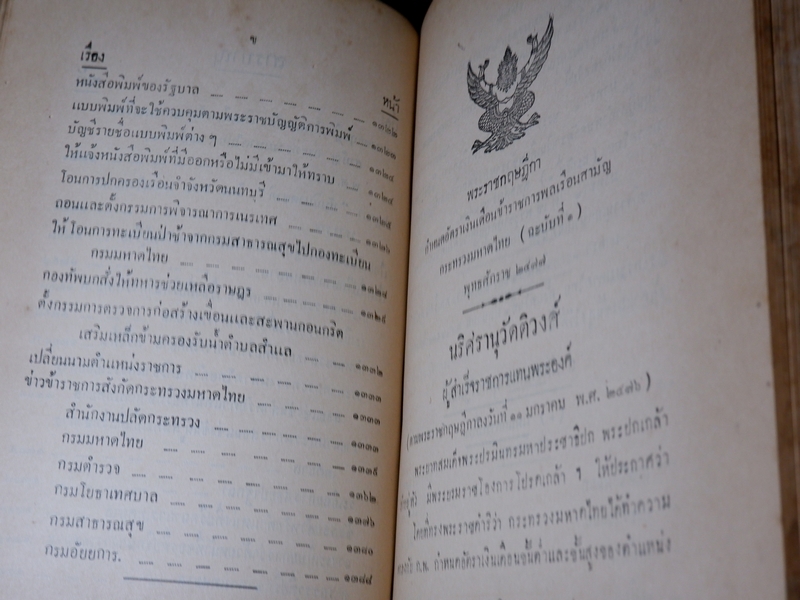 ข
เรื่อง
หน้า
หนังสือพิมพ์ของรัฐบาล ๑๓๒๒
แบบพิมพ์ที่จะใช้ควบคุมตามพระราชบัญญัติการพิมพ์
บัญชีรายชื่อแบบพิมพ์ต่าง ๆ
ให้แจ้งหนังสือพิมพ์ที่มีออกหรือไม่มีเข้ามาให้ทราบ ๑๓๒๔
โอนการปกครองเรือนจำจังหวัดนนทบุรี
ถอนและตั้งกรรมการพิจารณาการเนรเทศ
ให้โอนการทะเบียนป่าช้าจากกรมสาธารณสุขไปกองทะเบียน
กรมมหาดไทย
กองทัพบกสั่งให้ทหารช่วยเหลือราษฎร
ตั้งกรรมการตรวจการก่อสร้างเขื่อนและสะพานคอนกรีต
เสริมเหล็กข้ามคลองรับน้ำตำบลสำแล ๑๓๓๒
เปลี่ยนนามตำแหน่งราชการ
ข่าวข้าราชการสังกัดกระทรวงมหาดไทย ๑๓๓๓
สำนักงานปลัดกระทรวง ๑๓๓๓
กรมมหาดไทย ๑๓๓๕
กรมตำรวจ ๑๓๖๒
กรมโยธาเทศบาล ๑๓๗๖
กรมสาธารณสุข ๑๓๘๐
กรมอัยยการ. ๑๓๘๘
พระราชกฤษฎีกา
กำหนดอัตราเงินเดือนข้าราชการพลเรือนสามัญ
กระทรวงมหาดไทย (ฉะบับที่ ๑)
พุทธศักราช ๒๔๗๗
นริศรานุวัดติวงศ์
ผู้สำเร็จราชการแทนพระองค์
(ตามพระราชกฤษฎีกาลงวันที่ ๑๑ มกราคม พ.ศ. ๒๔๗๖)
พระบาทสมเด็จพระปรมินทรมหาประชาธิปก พระปกเกล้า
เจ้าอยู่หัว มีพระบรมราชโองการโปรดเกล้า ฯ ให้ประกาศว่า
โดยที่ทรงพระราชดำริว่า กระทรวงมหาดไทยได้ทำความ
ตกลงกับ ก.พ. กำหนดอัตราเงินเดือนขั้นต่ำและขั้นสูงของตำแหน่ง